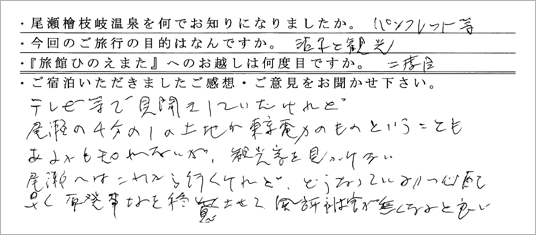 ・尾瀬檜枝岐温泉を何でお知りになりましたか。 パンフレット等
・今回のご旅行の目的はなんですか。 湯治と観光
・『旅館ひのえまた』へのお越しは何度目ですか。 二度目
・ご宿泊いただきましたご感想・ご意見をお聞かせ下さい。
テレビ等で見聞きしていたけれど
尾瀬の4分の1の土地が東京電力のものということも
あるかも知れないが、観光客を見かけない
尾瀬へはこれから行くけれど、どうなっているか心配
早く原発事故を終息させて風評被害が無くなると良い